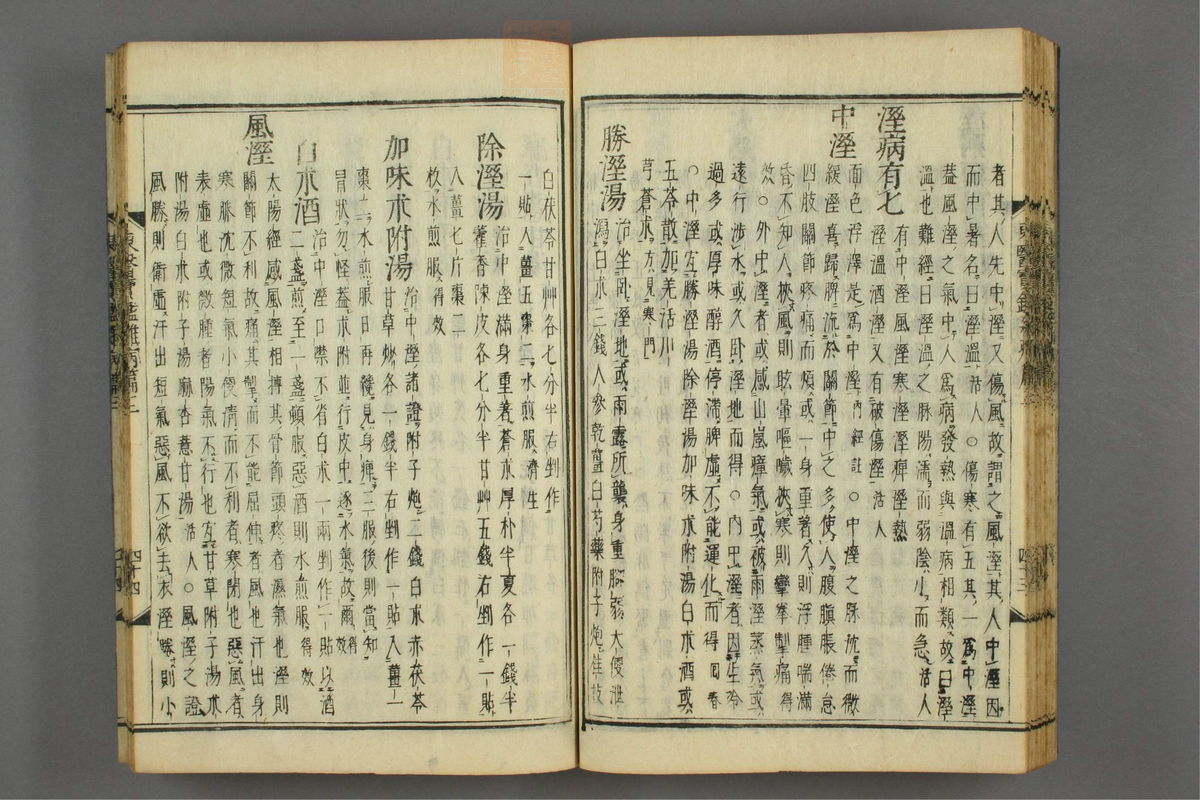 者其人先中溼又傷風故謂之風溼其人中溼因
而中暑名曰溼溫活人○傷寒有五其一爲中溼
蓋風溼之氣中人爲病發熱與溫病相類故曰溼
溫也難經曰溼溫之脉陽濡而弱陰小而急活人
溼病有七
有中溼風溼寒溼溼痺溼熱
溼溫酒溼又有破傷溼活人
中溼
面色浮澤是爲中溼內經註○中溼之脉沈而微
緩溼喜歸脾流於關節中之多使人腹䐜脹倦怠
四肢關節疼痛而煩或一身重著久則浮腫喘滿
昏不知人挾風則眩暈嘔噦挾寒則攣拳掣痛得
效○外中溼者或感山嵐瘴氣或被雨溼蒸氣或
遠行涉水或久臥溼地而得○內中溼者因生冷
過多或厚味醇酒停滯脾虛不能運化而得回春
○中溼宜勝溼湯除溼湯加味朮附湯白朮酒或
五苓散加羌活川
芎蒼朮方見寒門
勝溼湯
治坐臥溼地或雨露所襲身重脚弱大便泄
瀉白朮三錢人參乾薑白芍藥附子炮桂枝
白茯苓甘艸各七分半右剉作
一貼入薑五棗二水煎服濟生
除溼湯
治中溼滿身重著蒼朮厚朴半夏各一錢半
藿香陳皮各七分半甘艸五錢右剉作一貼
入薑七片棗二
枚水煎服得效
加味朮附湯
治中溼諸證附子炮二錢白朮赤茯苓
甘草炒各一錢半右剉作一貼入薑一
棗二水煎服日再纔見身痺三服後則當如
冒狀勿怪蓋朮附並行皮中逐水氣故爾得效
白朮酒
治中溼口噤不省白朮一兩剉作一貼以酒
二盞煎至一盞頓服惡酒則水煎服得效
風溼
太陽經感風溼相搏其骨節頭疼者濕氣也溼則
關節不利故痛其掣而不能屈伸者風也汗出身
寒脉沈微短氣小便淸而不利者寒閉也惡風者
表虛也或微腫者陽氣不行也宜甘草附子湯朮
附湯白朮附子湯麻杏薏甘湯活人○風溼之證
風勝則衛虛汗出短氣惡風不欲去衣溼勝則小